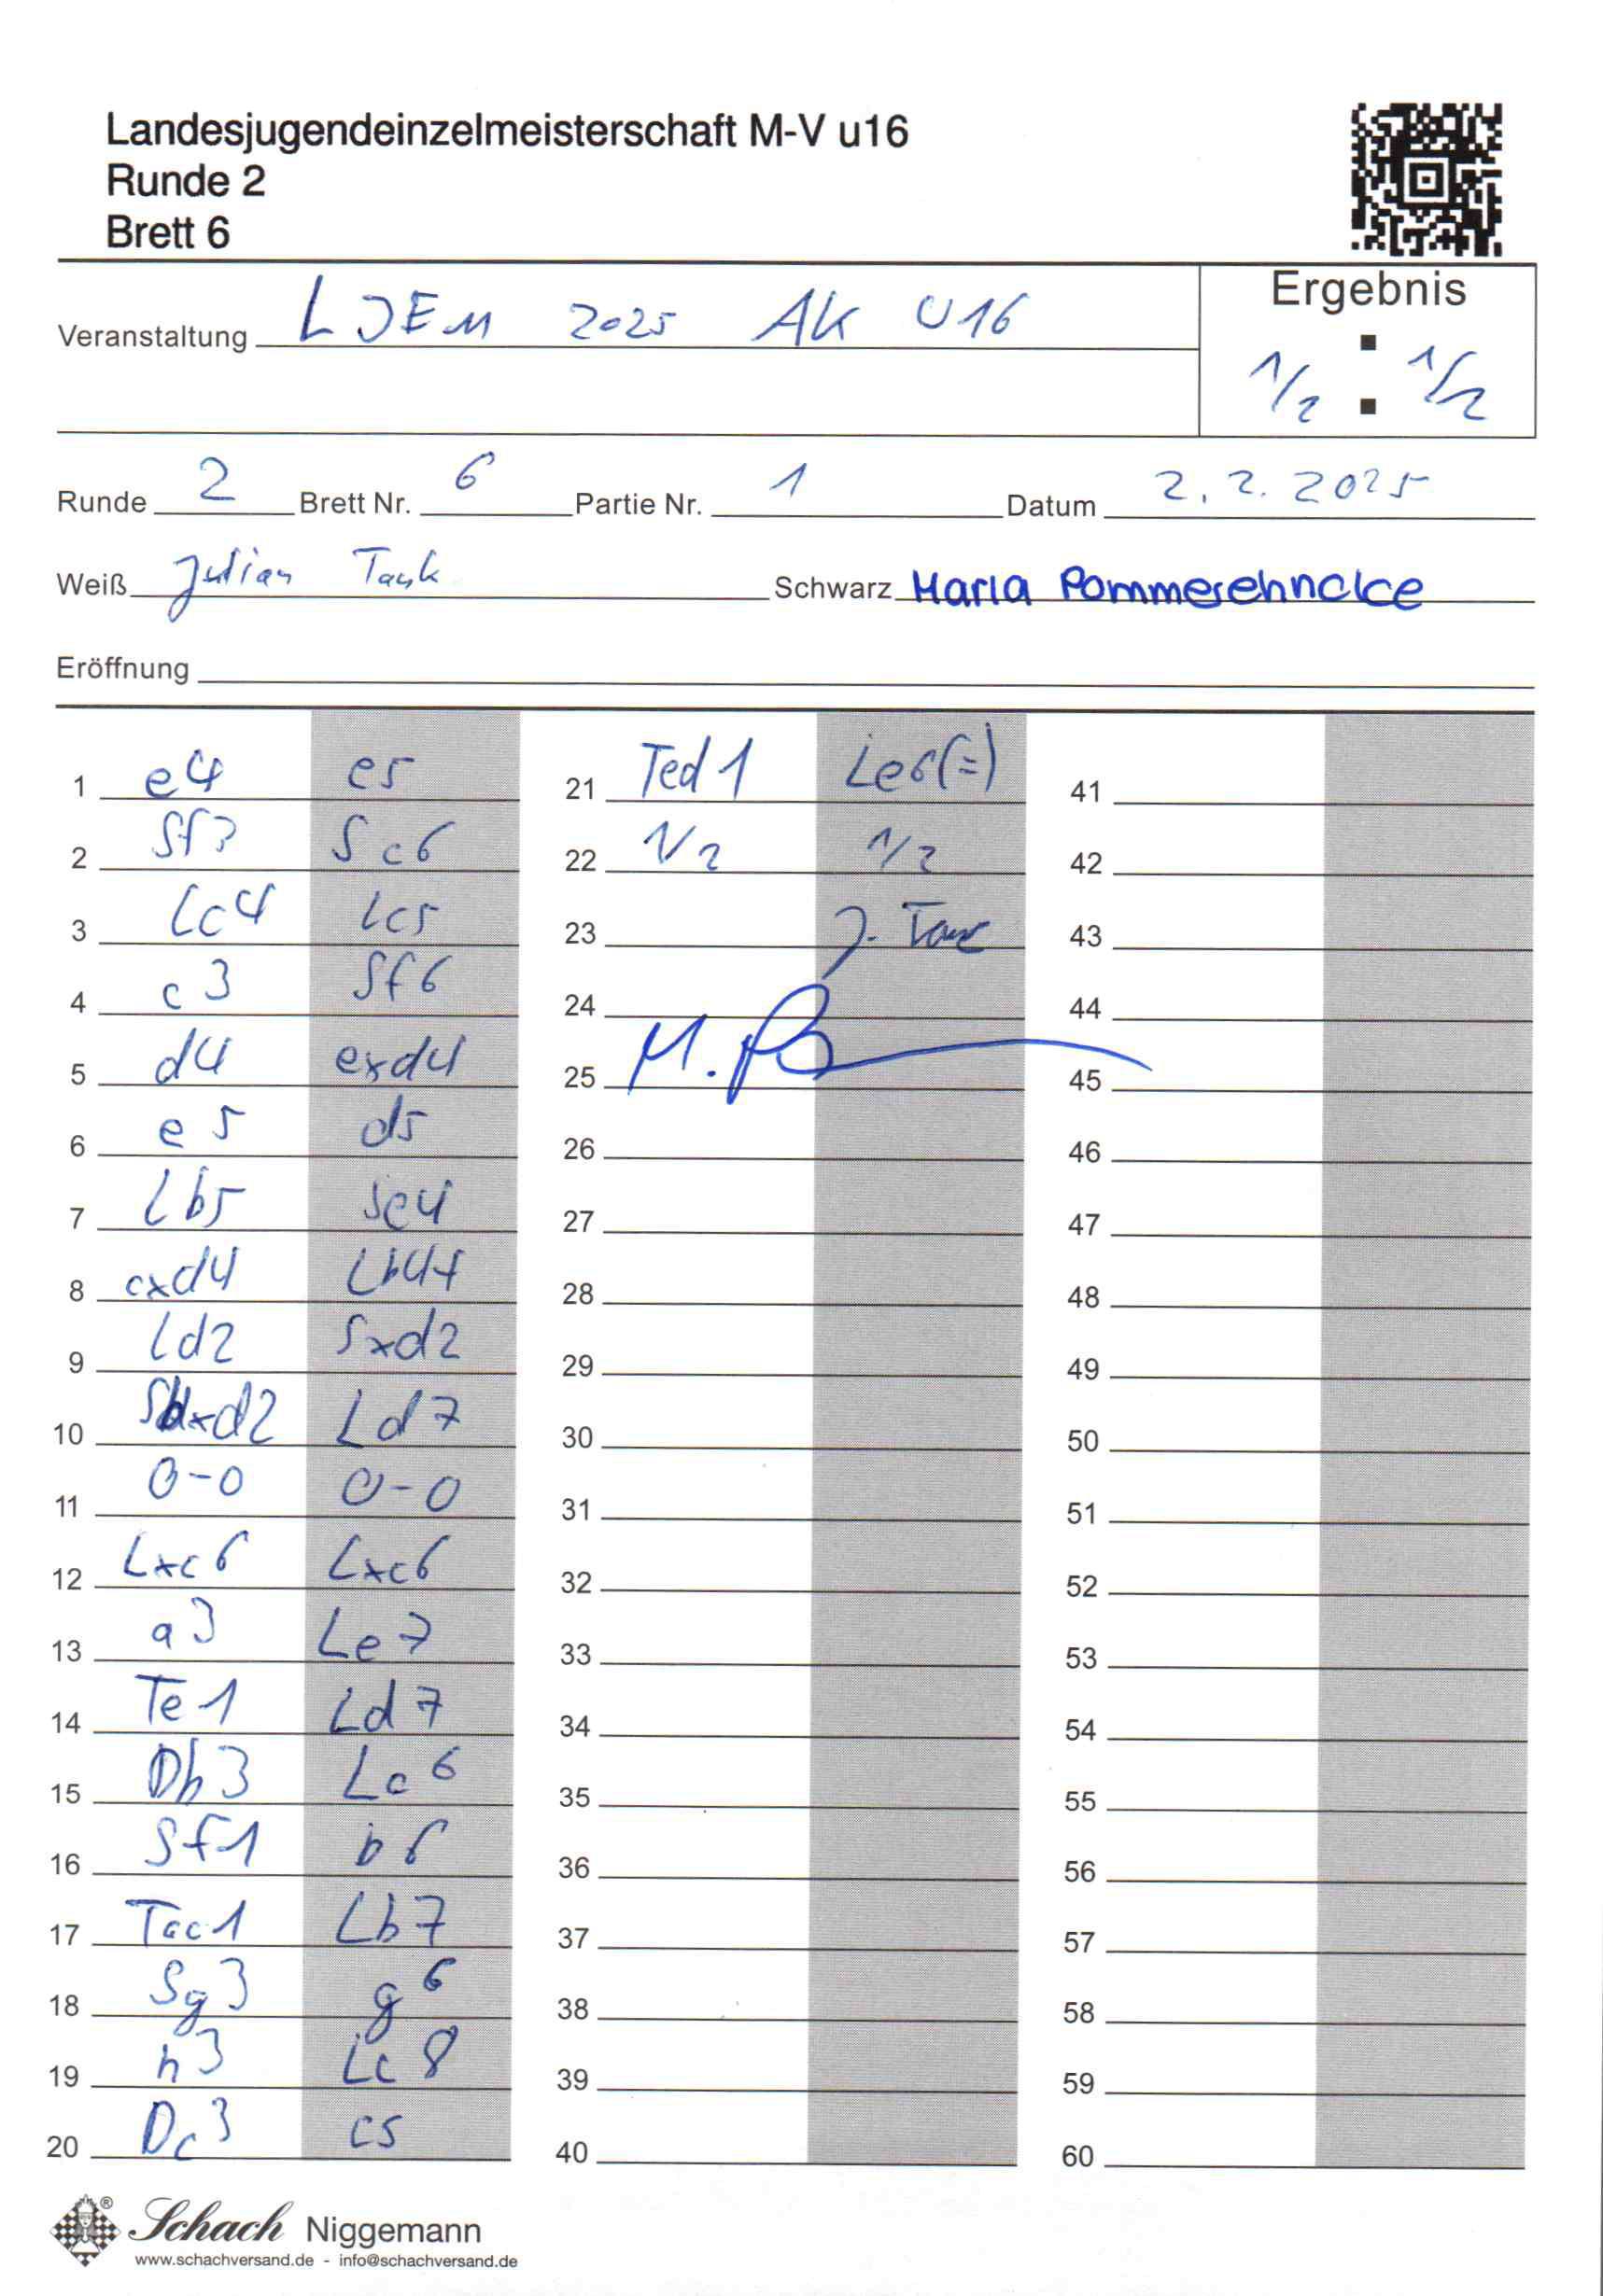 Landesjugendeinzelmeisterschaft M-V u16
Runde 2
Brett 6
Veranstaltung LJEM 2025 AK U16
Ergebnis
1/2 : 1/2
Runde 2 Brett Nr. 6 Partie Nr. 1 Datum 2.2.2025
Weiß Julian Tank Schwarz Marla Pommerehncke
Eröffnung
1 e4 e5 21 Ted1 Le6(=) 41
2 Sf3 Sc6 22 1/2 1/2 42
3 Lc4 Lc5 23 J. Tank 43
4 c3 Sf6 24 44
5 d4 exd4 25 M. 45
6 e5 d5 26 46
7 Lb5 Se4 27 47
8 cxd4 Lb4+ 28 48
9 Ld2 Sxd2 29 49
10 Sbxd2 Ld7 30 50
11 0-0 0-0 31 51
12 Lxc6 Lxc6 32 52
13 a3 Le7 33 53
14 Te1 Ld7 34 54
15 Db3 Lc6 35 55
16 Sf1 b6 36 56
17 Tac1 Lb7 37 57
18 Sg3 g6 38 58
19 h3 Lc8 39 59
20 Dc3 c5 40 60
Schach Niggemann
www.schachversand.de - info@schachversand.de